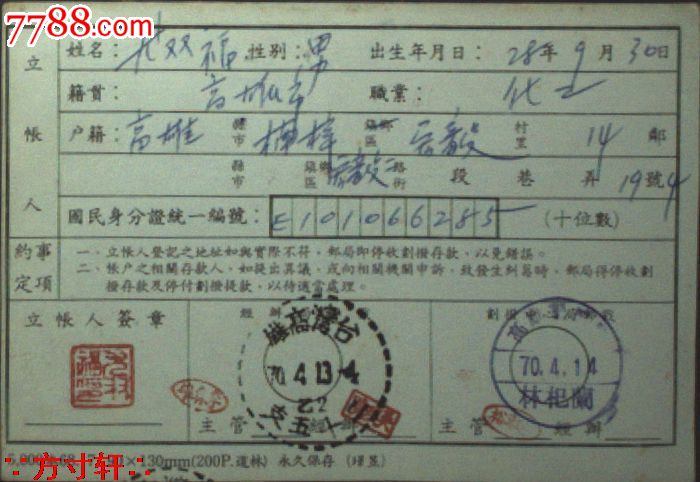 7788.com
立帳人
姓名： 双福 性別：男 出生年月日：28年9月30日
籍貫：高雄市 職業：
戶籍：高雄 縣市 楠梓 鎮鄉區 宏毅 村里 14 鄰
縣市 鎮鄉區 宏毅二 路街 段 巷 弄 19號4
國民身分證統一編號：E101066285 （十位數）
約事定項
一、立帳人登記之地址如與實際不符，郵局即停收劃撥存款，以免錯誤。
二、帳戶之相關存款人，如提出異議，或向相關機關申訴，致發生糾葛時，郵局得停收劃撥存款及停付劃撥提款，以待適當處理。
立帳人簽章
經辦
劃撥中心局
台灣高雄
70.4.13.4
乙2
高
70.4.14
林杞蘭
主管 經辦
主管 經辦
130mm(200P.道林) 永久保存
.:方寸軒:.